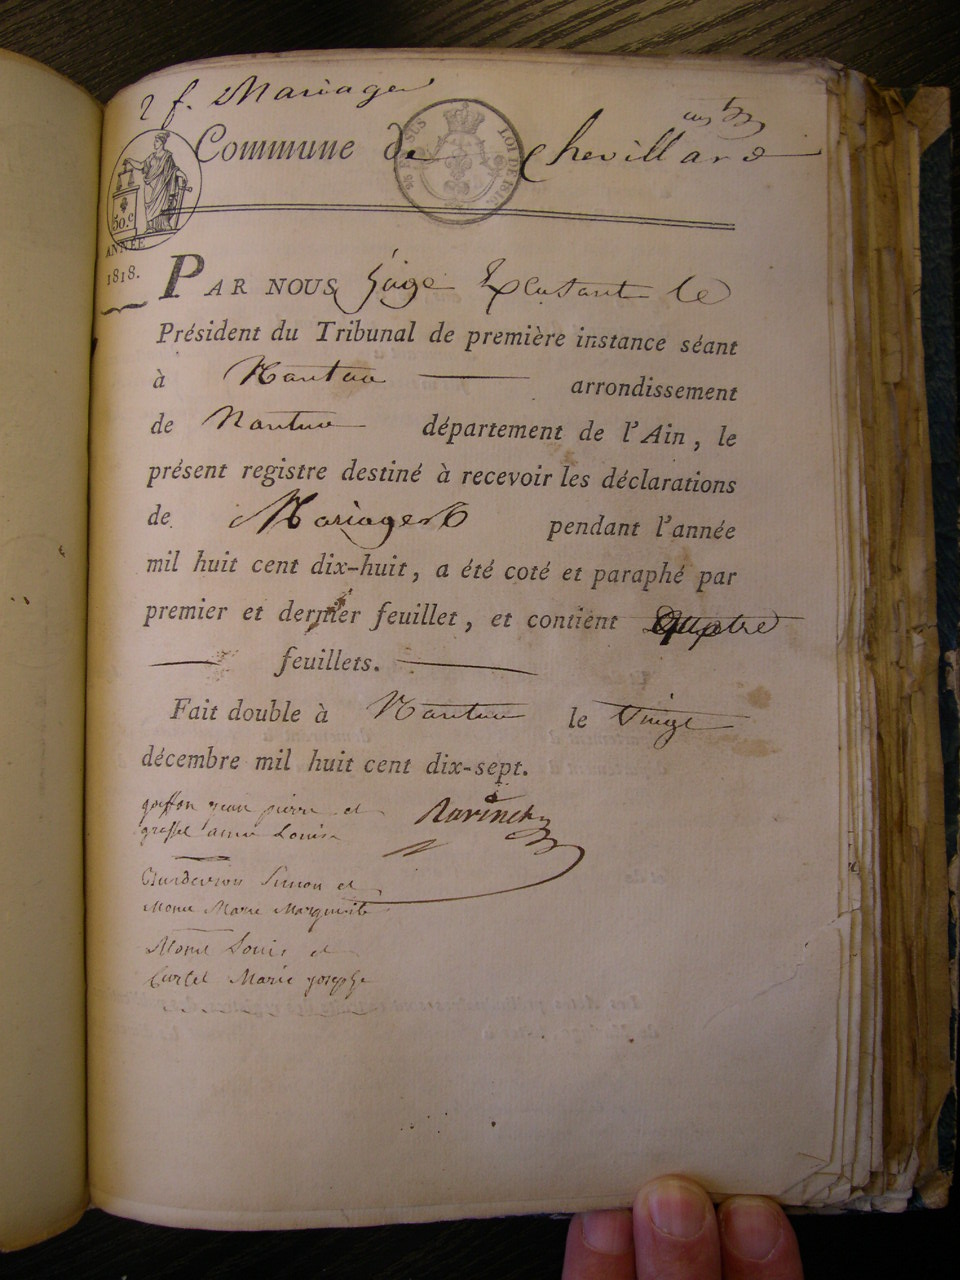 2 f. Mariages
Commune de Chevillard
EN SUS LOI DE 1816
50.c
ANNÉE
1818.
PAR NOUS Juge le
Président du Tribunal de première instance séant
à Nantua arrondissement
de Nantua département de l'Ain, le
présent registre destiné à recevoir les déclarations
de Mariages pendant l'année
mil huit cent dix-huit, a été coté et paraphé par
premier et dernier feuillet, et contient quatre
feuillets.
Fait double à Nantua le vingt
décembre mil huit cent dix-sept.
goiffon jean pierre et
anne Louise
Simon et
Marie Marguerite
Louis et
Curtel Marie josephe